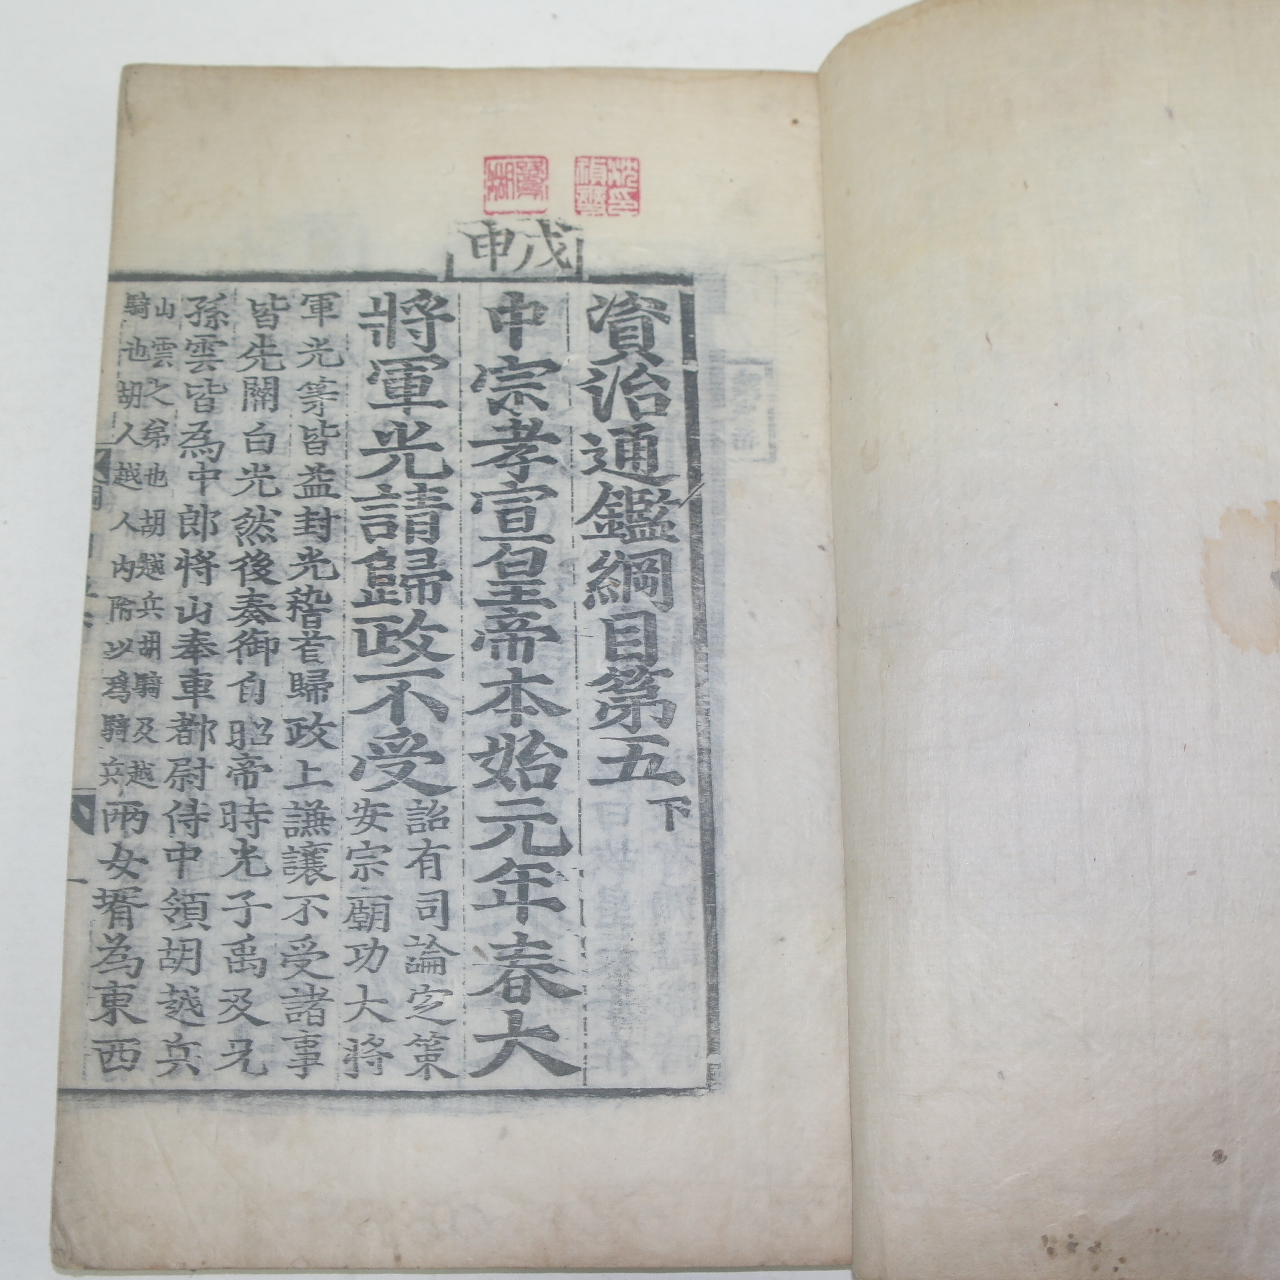 戊申
資治通鑑綱目第五下
中宗孝宣皇帝本始元年春大
將軍光請歸政不受
詔有司論定策
安宗廟功大將
軍光等皆益封光稽首歸政上謙讓不受諸事
皆先關白光然後奏御自昭帝時光子禹及兄
孫雲皆為中郎將山奉車都尉侍中領胡越兵
山雲之弟也胡越兵胡騎及越
騎也胡人越人內附以爲騎兵
兩女壻為東西